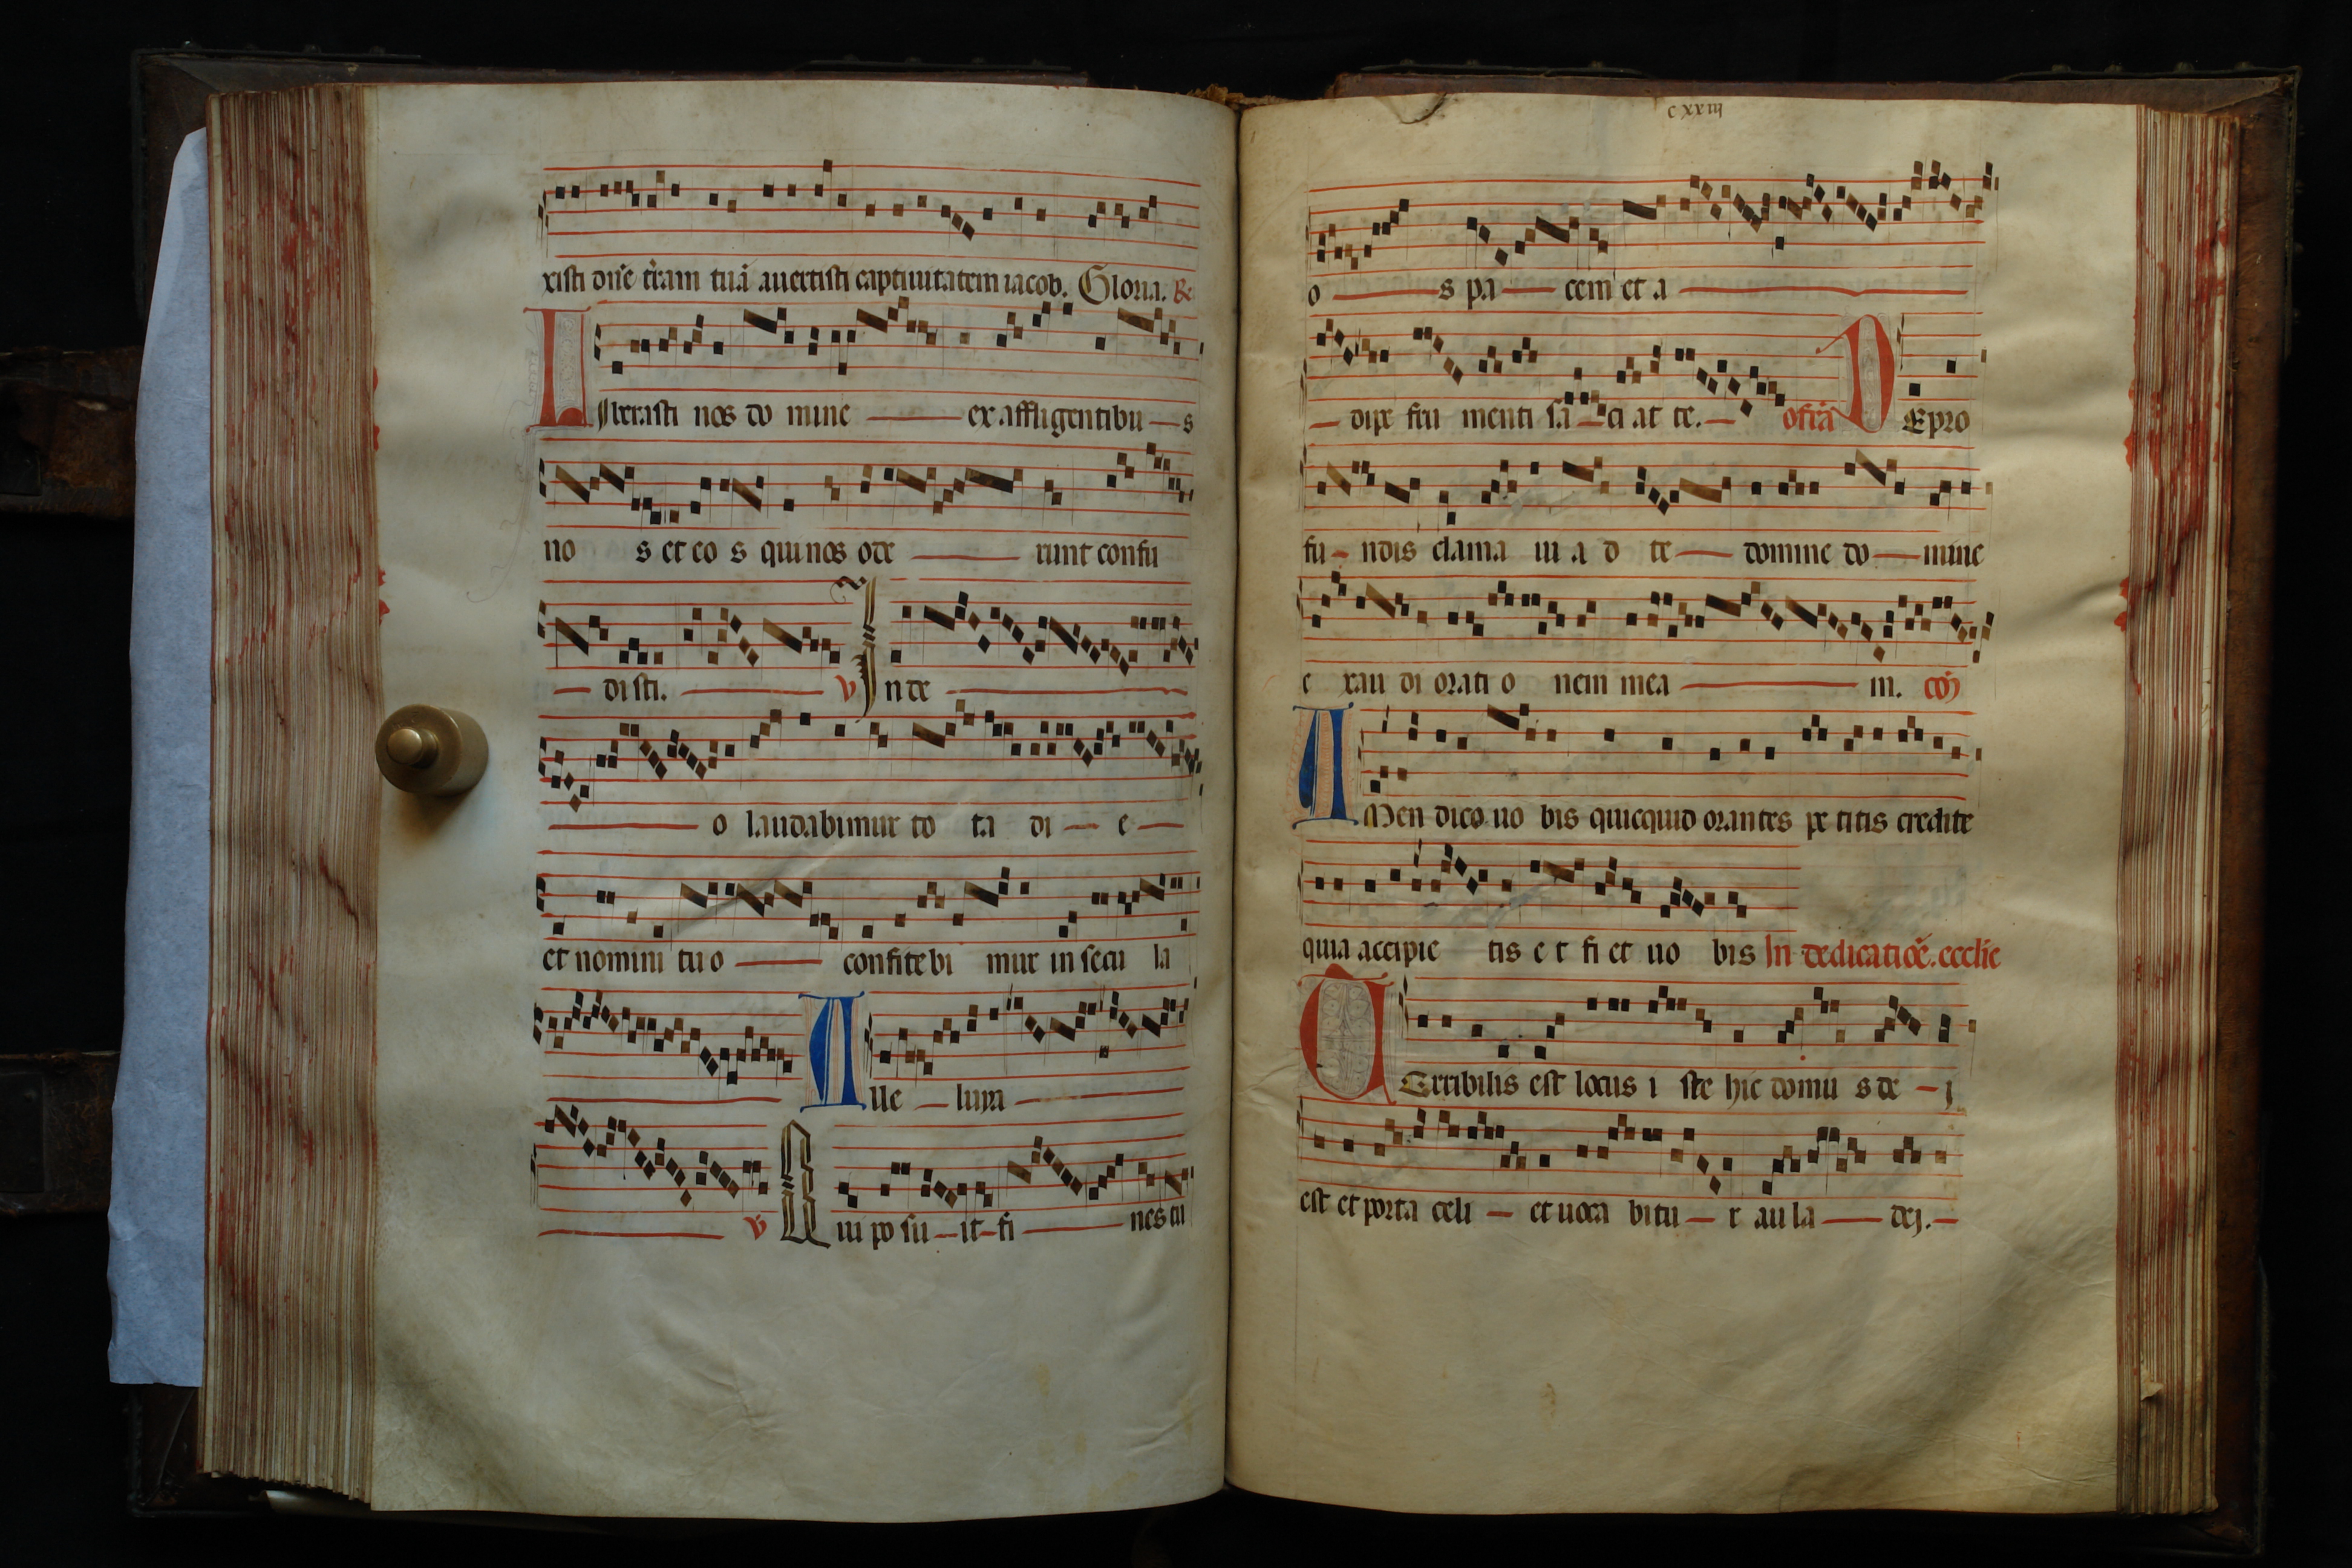 xisti dn̄e t̄ram tuā auertisti captiuitatem iacob. Gloria. R̄
Liberasti nos do mine ex affligentibu s
no s et eo s qui nos ode runt confu
di sti. V In de
o laudabimur to ta di e
et nomini tu o confitebi mur in secu la
Alle luya
V Qui po su it fi nes tu
cxxiij
o s pa cem et a
dipe fru menti sa ci at te. offr̄a De pro
fu ndis clama ui a d te domine do mine
e xau di orati o nem mea m. cō
Amen dico uo bis quicquid orantes pe titis credite
quia accipie tis e t fi et uo bis In dedicatiōe. ecclīe
Terribilis est locus i ste hic domu s de j
est et porta celi et uoca bitu r au la dej.